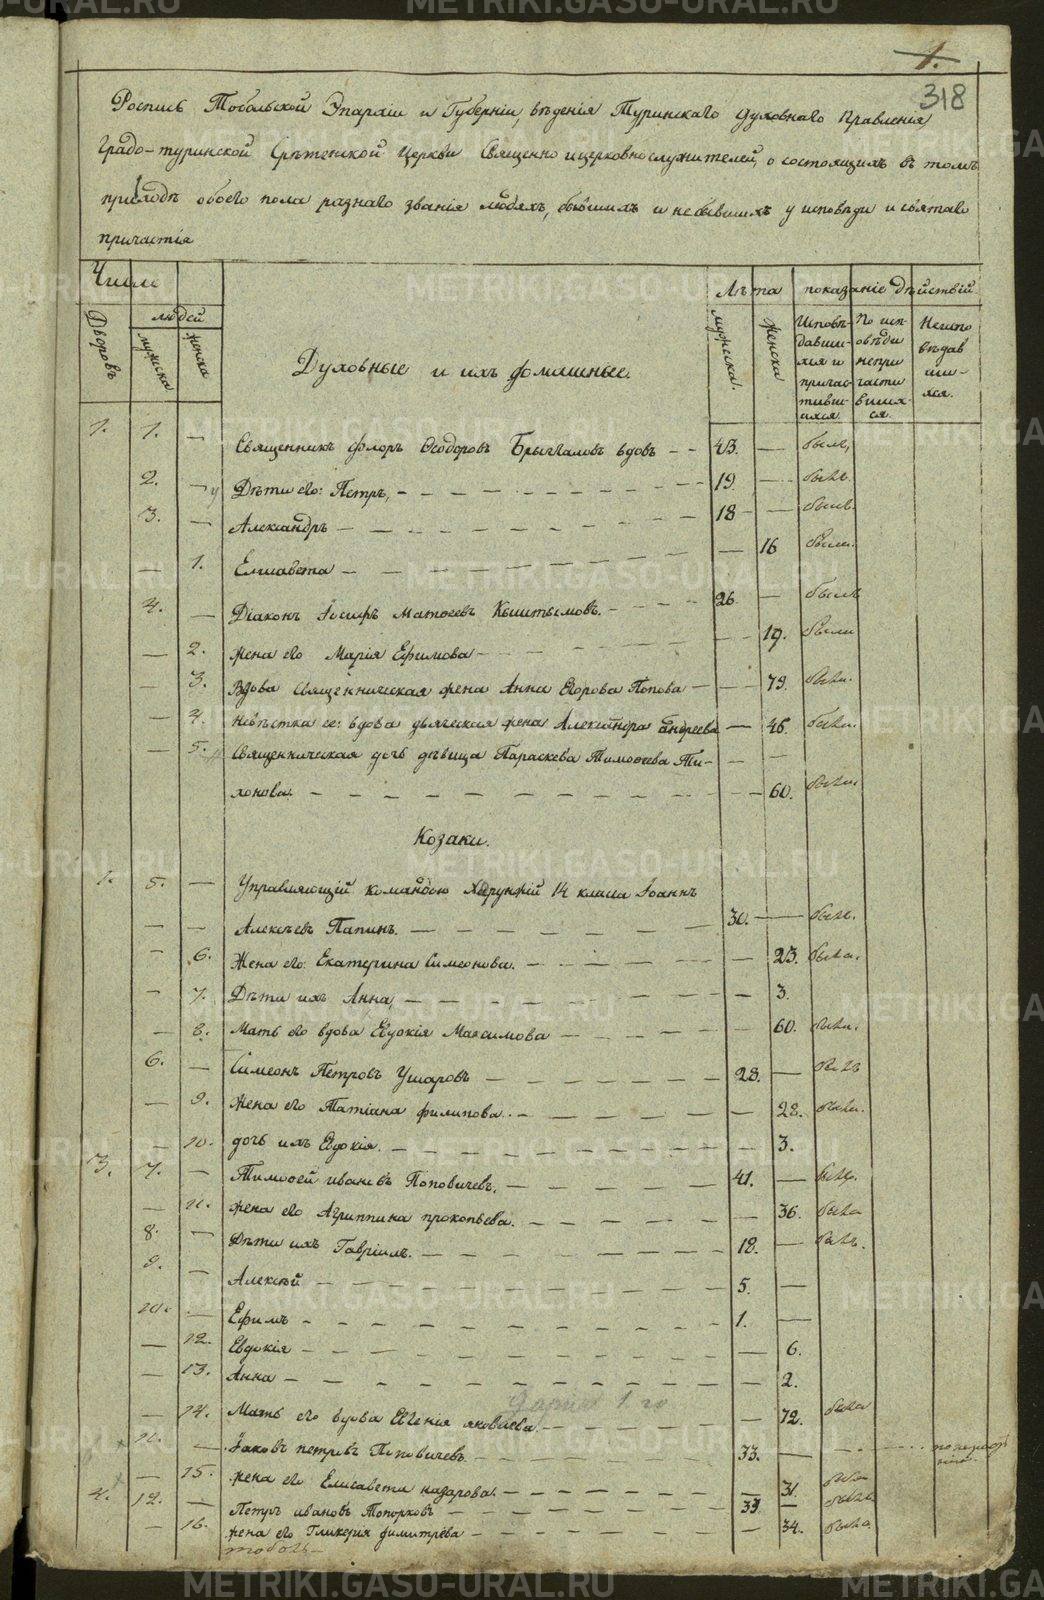 1.
318
Роспись Тобольской Эпархіи и Губерніи, вѣденія Туринскаго Духовнаго Правленія
Градо-туринской Срѣтенской Церкви Священно ицерковнослужителей, о состоящихъ въ томъ
приходѣ обоего пола разнаго званія людяхъ, бывшихъ и небывшихъ у исповѣди и святаго
причастія
Число
людей
Дворовъ
мужеска
женска
Духовные и ихъ фомилные.
Лѣта
мужеска.
женска
показаніе дѣйствій
Исповѣ-
давши-
хся и
причас-
тивши-
ихся
По исп-
овѣди
непри
части
вшихъ-
ся.
Неиспо
вѣдав
ши-
хся.
1. 1. — Священникъ Флоръ Ѳеодоровъ вдовъ - - 43. — былъ,
2. — Дѣти его: Петръ, — 19. — былъ.
3. — Александръ — 18 — былъ.
— 1. Елисавета — 16 была.
4. — Діаконъ Іосифъ Матѳеевъ Кыштымовъ. - 26 — былъ
— 2. жена его Марія Ефимова — 19. была
— 3. Вдова священническая жена Анна Егорова Попова — 79. была.
— 4. невѣстка ее: вдова дьяческая жена Александра Андреева — 46. была.
— 5. Священническая дочь дѣвица Параскева Тимоѳеева Ти- — —
хонова. — 60. была.
Козаки.
1. 5. — Управляющій командою Хорунжій 14 класа Іоаннъ
— — Алексѣевъ Папинъ. — 30. — былъ.
— 6. Жена его: Екатерина Симеонова. — 23. была.
— 7. Дѣти ихъ Анна, — 3.
— 8. Мать его вдова Евдокія Максимова — 60. была.
6. — Симеонъ Петровъ Ушаровъ — 28. — былъ
— 9. Жена его Татіана филипова. — 28. была.
— 10. дочь ихъ Евдокія. — 3.
3. 7. — Тимоѳей ивановъ Поповичевъ. — 41. — былъ.
— 11. жена его Агриппина прокопьева. — 36. была
8. — Дѣти ихъ Гавріилъ. — 18. — былъ.
9. — Алексѣй — 5. —
10. — Ефимъ — 1. —
— 12. Евдокія — 6.
— 13. Анна — 2.
Дарія 1 го
— 14. Мать его вдова Евгенія яковлева — 72. была
11. — Іаковъ петровъ Поповичевъ — 33. —
— 15. жена его Елисавета назарова. — 31. была
4. 12. — Петръ ивановъ Топорковъ — 39. — былъ
— 16. жена его Гликерия димитрева — 34. была
тоболь—
METRIKI.GASO-URAL.RU